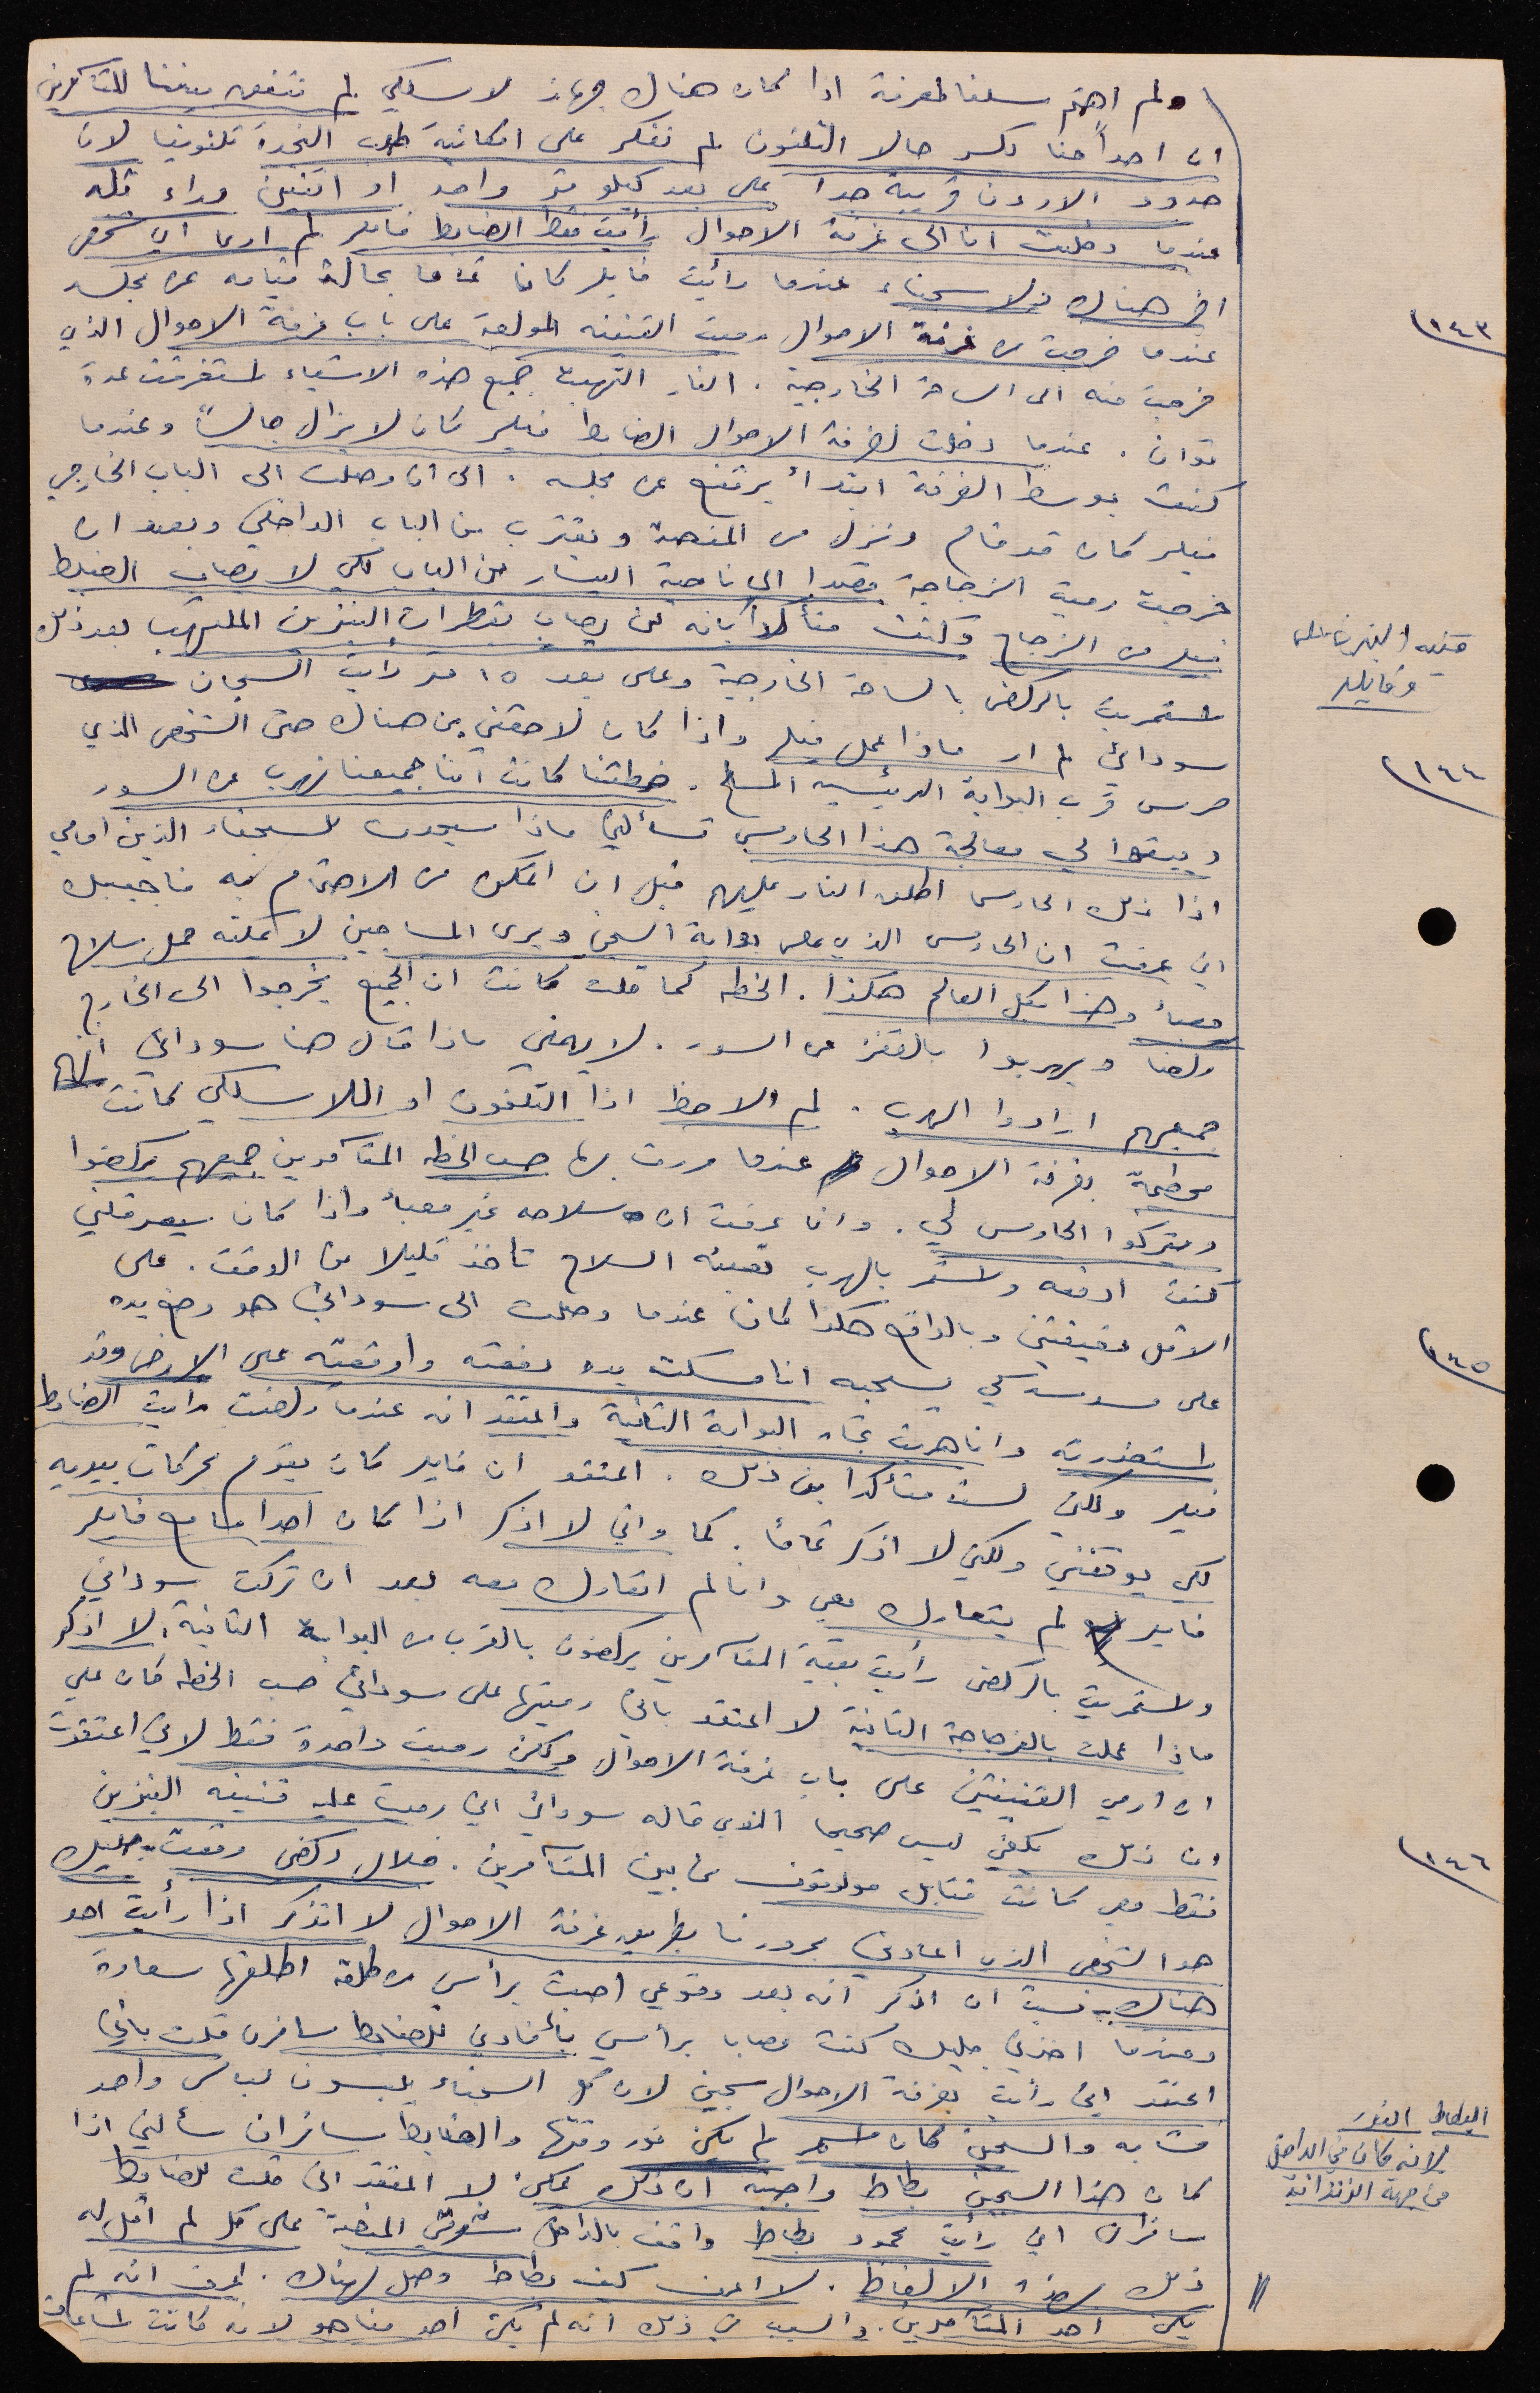 ولم اهتم سلفا لمعرفة اذا كان هناك جهاز لاسلكي لم نتفق بيننا للمتآمرين
ان احداً منا يكسر حالا التلفون لم نفكر على امكانية طلب النجدة تلفونيا لان
حدود الاردن قريبة جدا على بعد كيلو متر واحد او اثنين وراء تله
عندما دخلت انا الى غرفة الاحوال رأيت فقط الضابط فايلر لم ارى اي شخص
اخر هناك ولا سجناء عندما رأيت فايلر كان تماما بحالة قيامه عن مجلسه
١٤٣)
عندما خرجت من غرفة الاحوال رميت القنينه المولعة على باب غرفة الاحوال الذي
خرجت منه الى الساحة الخارجية . النار التهبت جميع هذه الاشياء استغرقت عدة
ثوان . عندما دخلت لغرفة الاحوال الضابط فيلر كان لا يزال جالساً وعندما
كنت بوسط الغرفة ابتدأ يرتفع عن مجلسه . الى ان وصلت الى الباب الخارجي
فيلر كان قد قام ونزل من المنصة ويقترب من الباب الداخلي وبعد ان
خرجت رميت الزجاجة مقصدا الى ناحية اليسار من الباب لكي لا يصاب الضابط
فيلر من الزجاج وكنت متأكدا بانه لن يصاب بقطرات البنزين الملتهب بعد ذلك
قنينه البنزين على
وفايلر
استمريت بالركض بالساحة الخارجية وعلى بعد ١٥ متر رأيت السجان
سوداي لم ار ماذا عمل فيلر واذا كان لاحقني من هناك حتى الشخص الذي
١٤٤)
حرس قرب البوابة الرئيسيه المسلح . خطتنا كانت اننا جميعنا نهرب عن السور
ويبقوا لي معالجة هذا الحارس تسألني ماذا سيحدث للسجناء الذين امامي
اذا ذلك الحارس اطلق النار عليهم قبل ان اتمكن من الاهتمام به فاجيبك
اني عرفت ان الحارس الذي على بوابة السجن ويرى المساجين لا يمكنه حمل سلاح
معبأ وهذا بكل العالم هكذا . الخطه كما قلت كانت ان الجميع يخرجوا الى الخارج
ركضا ويهربوا بالقفز عن السور . لا يهمني ماذا قال هنا سوداي انهم
جميعهم ارادوا الهرب . لم الاحظ اذا التلفون او اللاسلكي كانت
محطمة بغرفة الاحوال عندما مررت بها حسب الخطه المتآمرين جميعهم يركضوا
ويتركوا الحارس لي . وانا عرفت ان سلاحه غير معبأ واذا كان سيعرقلني
كنت ادفعه واستمر بالهرب تعبئه السلاح تاخذ قليلا من الوقت . على
الاقل دقيقتين وبالواقع هكذا كان عندما وصلت الى سوداي هو وضع يده
١٤٥)
على مسدسه لكي يسحبه انا مسكت يده دفعته واوقعته على الارض وقد
استعذرته وانا هربت تجاه البوابة الثانية واعتقد انه عندما ركضت رأيت الضابط
فيلر ولكني لست متأكدا من ذلك . اعتقد ان فايلر كان يقوم بحركات بيديه
لكي يوقفني ولكني لا اذكر تماما . كما واني لا اذكر اذا كان احدا مع فايلر
فايلر لم يتعارك معي وانا لم اتعارك معه بعد ان تركت سوداي
واستمريت بالركض رأيت بقية المتآمرين يركضون بالقرب من البوابة الثانية، لا اذكر
ماذا عملت بالزجاجة الثانية لا اعتقد باني رميتها على سوداي حسب الخطه كان علي
ان ارمي القنينتين على باب غرفة الاحوال ولكن رميت واحدة فقط لاني اعتقدت
ان ذلك يكفي ليس صحيحا الذي قاله سوداي اني رميت عليه قنينه البنزين
١٤٦)
فقط معي كانت قنابل مولوتوف من بين المتآمرين . خلال ركضي وقعت جليك
هو الشخص الذي اعادني بمرورنا بطريق غرفة الاحوال لا اتذكر اذا رأيت احد
هناك نسيت ان اذكر انه بعد وقوعي اصبت برأسي من طلقة اطلقها سعادة
وعندما اخذني جليك كنت مصابا برأسي بأفادتي للضابط سافران قلت باني
اعتقد اني رأيت بغرفة الاحوال سجين لان كل السجناء يلبسون لباس واحد
متشابه والسجين كان اسمر لم يكن نور وقتها والضابط سافران سألني اذا
كان هذا السجين بطاط واجبته ان ذلك يمكن لا اعتقد اني قلت للضابط
سافران اني رأيت محمود بطاط واقف بالداخل المنصة على كل لم اقل له
ذلك بهذه الالفاظ . لا اعرف كيف بطاط وصل لهناك . اعرف انه لم
يكن احد المتآمرين . والسبب في ذلك انه لم يكن احد منا هو لانه كانت
البطاط النور
لانه كان في الداخل
من جهة الزنزانة